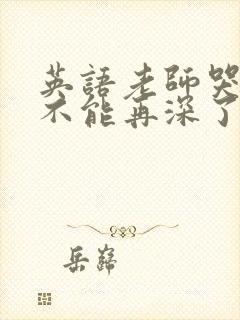 英語老師哭
不能再深了
岳巋